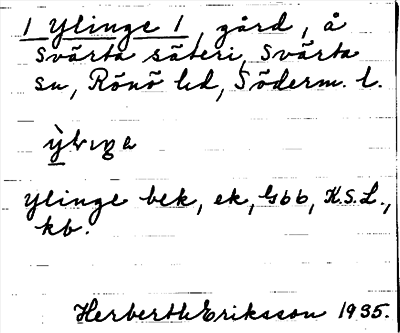 1 Ylinge 1, gård, å
Svärta säteri, Svärta
sn, Rönö hd, Söderm. l.
Ylinge bek, ek, Gbb, K.S.L.,
kb.
Herberth Eriksson 1935.